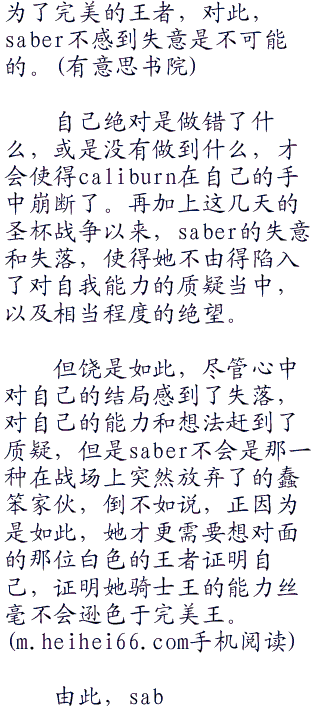 为了完美的王者，对此，
saber不感到失意是不可能
的。(有意思书院)
自己绝对是做错了什
么，或是没有做到什么，才
会使得caliburn在自己的手
中崩断了。再加上这几天的
圣杯战争以来，saber的失意
和失落，使得她不由得陷入
了对自我能力的质疑当中，
以及相当程度的绝望。
但饶是如此，尽管心中
对自己的结局感到了失落，
对自己的能力和想法赶到了
质疑，但是saber不会是那一
种在战场上突然放弃了的蠢
笨家伙，倒不如说，正因为
是如此，她才更需要想对面
的那位白色的王者证明自
己，证明她骑士王的能力丝
毫不会逊色于完美王。
(m.heihei66.com手机阅读)
由此，sab